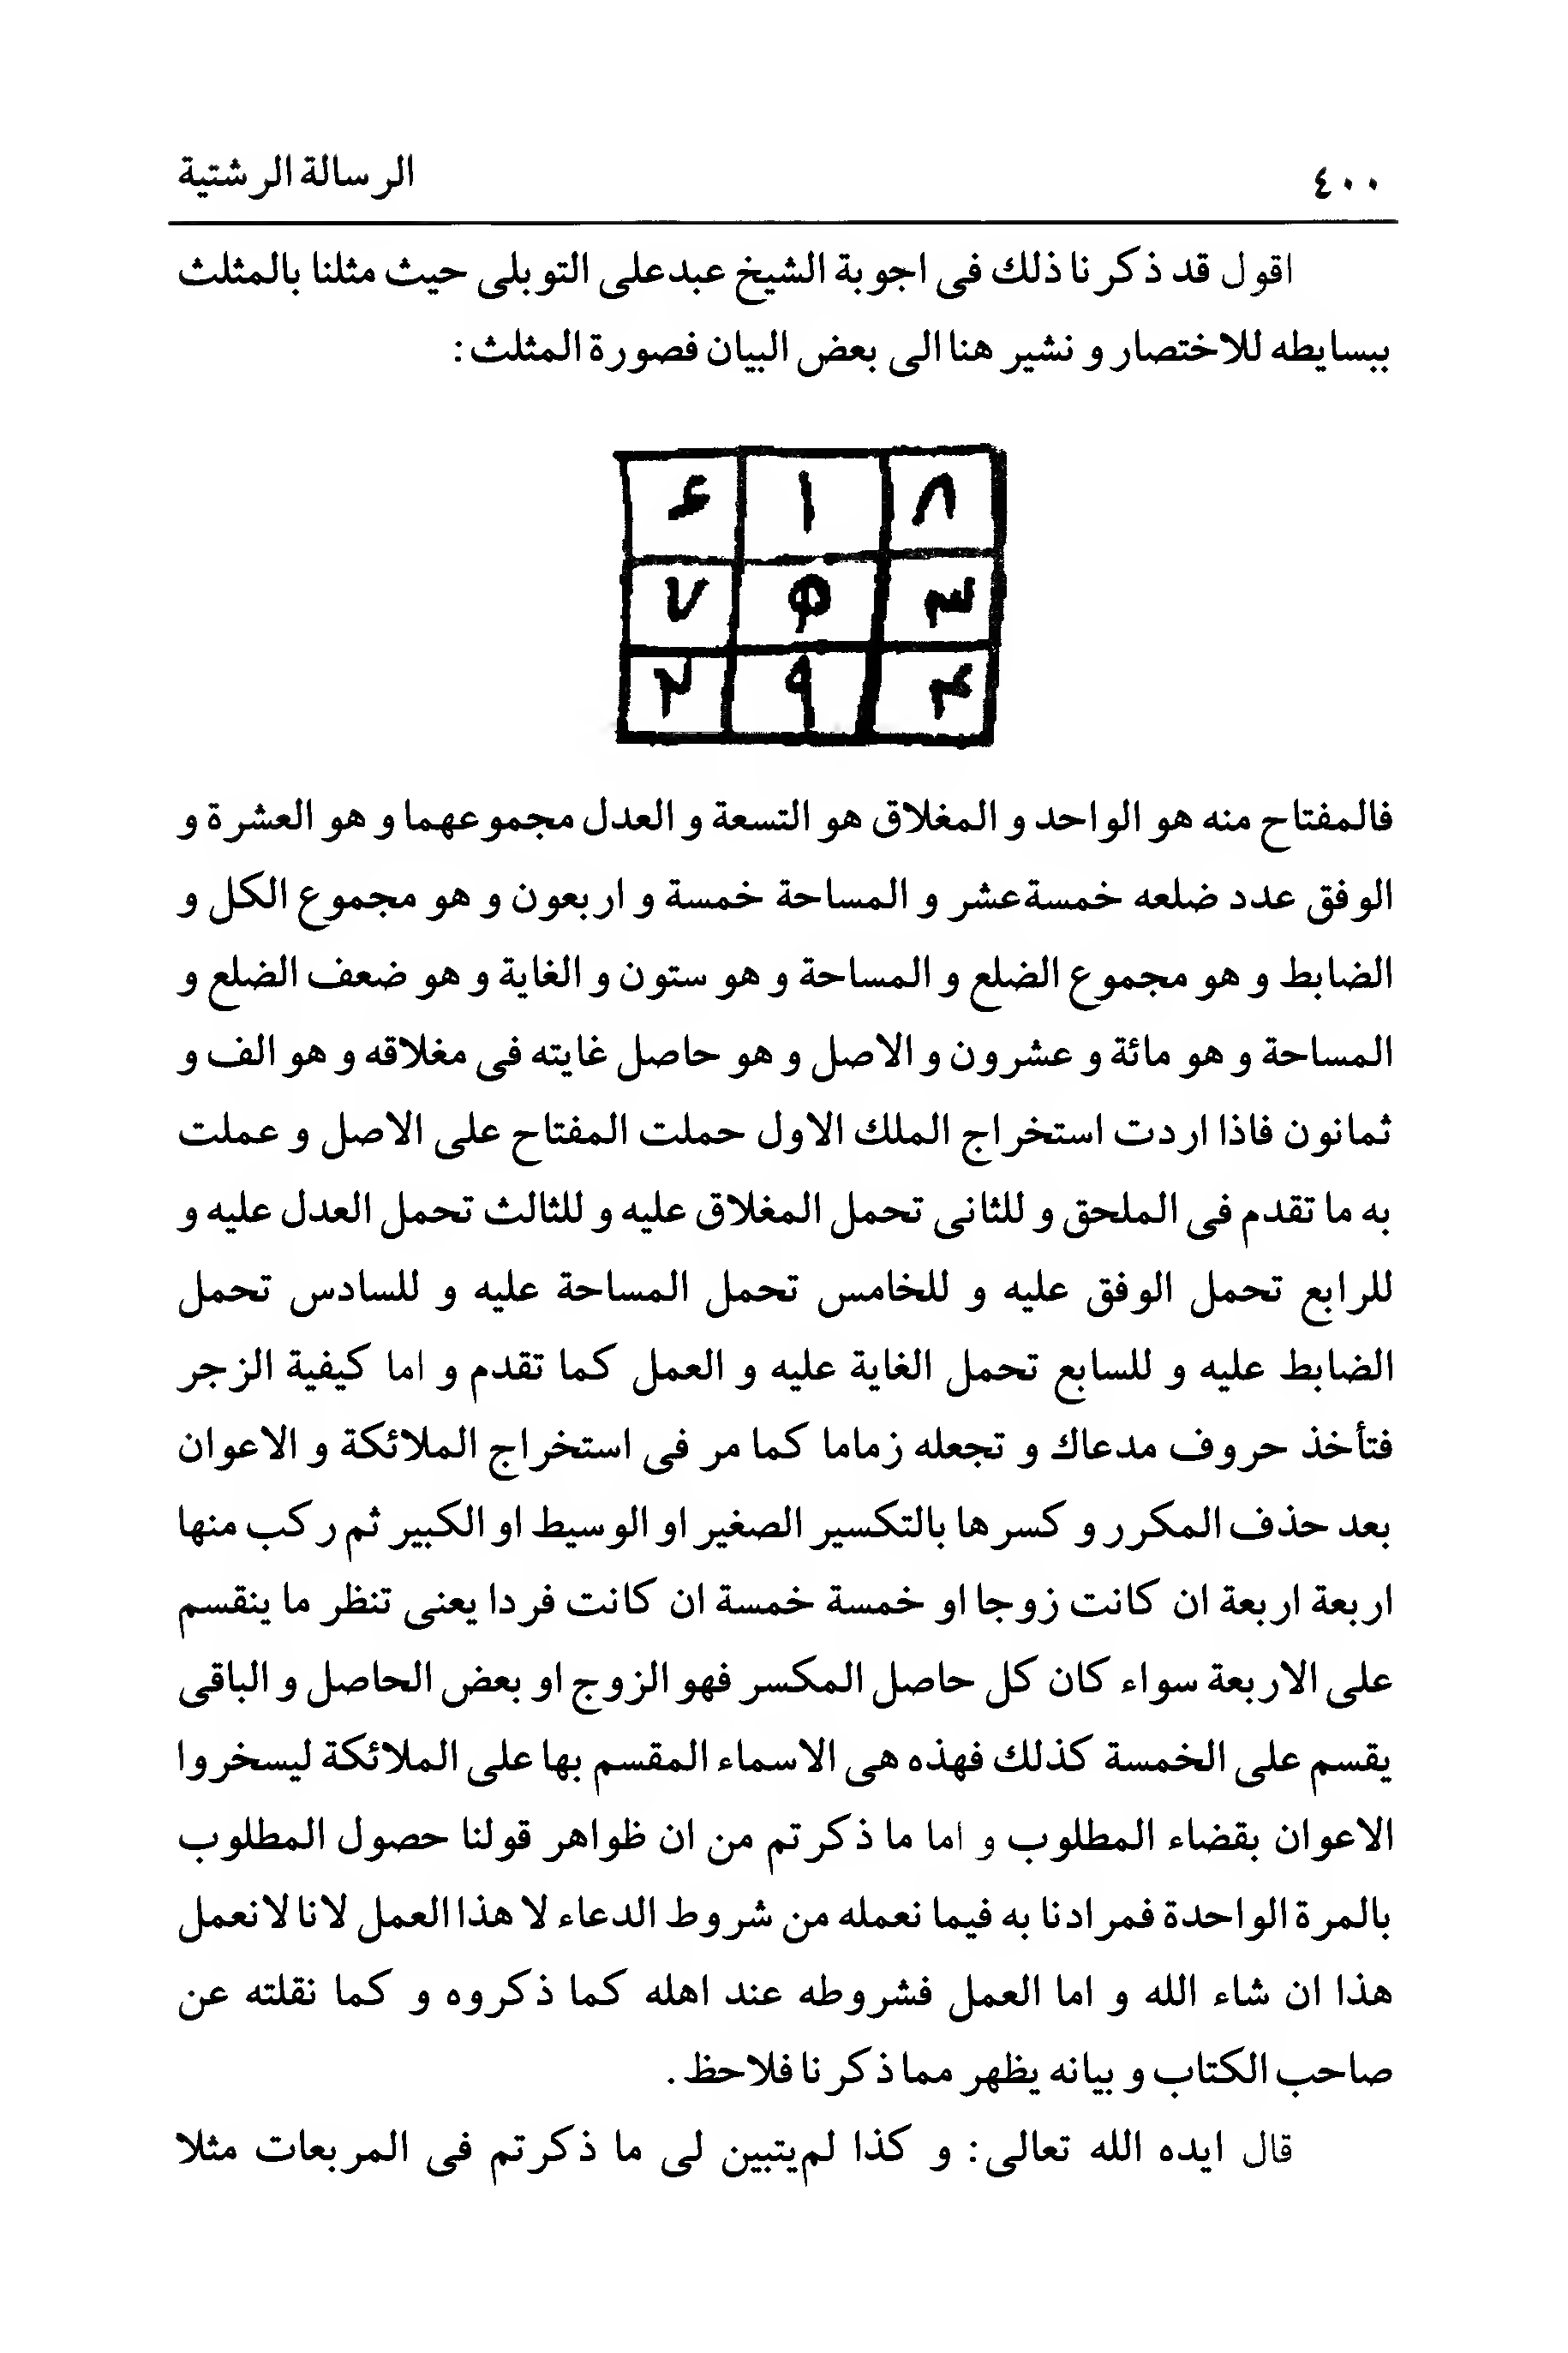 ٤٠٠ الرسالة الرشتية
اقول قد ذكرنا ذلك فى اجوبة الشيخ عبدعلى التوبلى حيث مثلنا بالمثلث
ببسايطه للاختصار و نشير هنا الى بعض البيان فصورة المثلث :
۸ ۱ ۶
۳ ۵ ۷
۴ ۹ ۲
فالمفتاح منه هو الواحد و المغلاق هو التسعة و العدل مجموعهما و هو العشرة و
الوفق عدد ضلعه خمسةعشر و المساحة خمسة و اربعون و هو مجموع الكل و
الضابط و هو مجموع الضلع و المساحة و هو ستون و الغاية و هو ضعف الضلع و
المساحة و هو مائة و عشرون و الاصل و هو حاصل غايته فى مغلاقه و هو الف و
ثمانون فاذا اردت استخراج الملك الاول حملت المفتاح على الاصل و عملت
به ما تقدم فى الملحق و للثانى تحمل المغلاق عليه و للثالث تحمل العدل عليه و
للرابع تحمل الوفق عليه و للخامس تحمل المساحة عليه و للسادس تحمل
الضابط عليه و للسابع تحمل الغاية عليه و العمل كما تقدم و اما كيفية الزجر
فتأخذ حروف مدعاك و تجعله زماما كما مر فى استخراج الملائكة و الاعوان
بعد حذف المكرر و كسرها بالتكسير الصغير او الوسيط او الكبير ثم ركب منها
اربعة اربعة ان كانت زوجا او خمسة خمسة ان كانت فردا يعنى تنظر ما ينقسم
على الاربعة سواء كان كل حاصل المكسر فهو الزوج او بعض الحاصل و الباقى
يقسم على الخمسة كذلك فهذه هى الاسماء المقسم بها على الملائكة ليسخروا
الاعوان بقضاء المطلوب و اما ما ذكرتم من ان ظواهر قولنا حصول المطلوب
بالمرة الواحدة فمرادنا به فيما نعمله من شروط الدعاء لا هذا العمل لانا لا نعمل
هذا ان شاء الله و اما العمل فشروطه عند اهله كما ذكروه و كما نقلته عن
صاحب الكتاب و بيانه يظهر مما ذكرنا فلاحظ .
قال ايده الله تعالى : و كذا لم‌يتبين لى ما ذكرتم فى المربعات مثلا